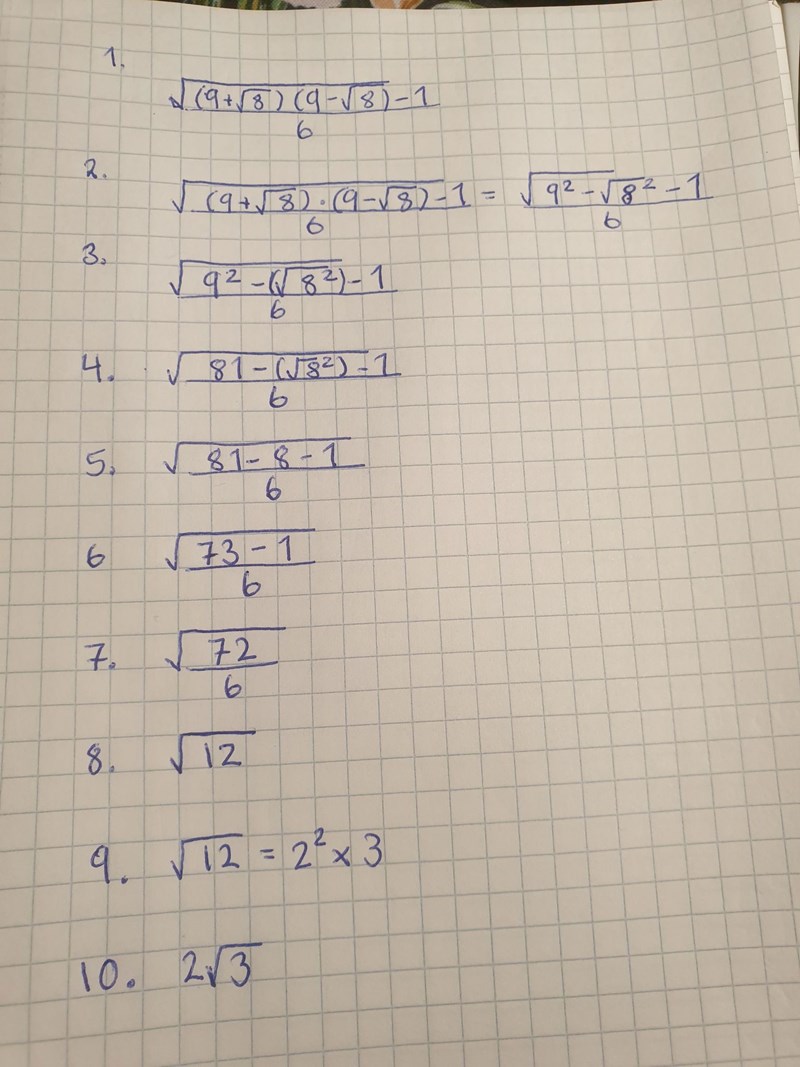 1. √((9+√8)(9-√8)-1)/6
2. √((9+√8)·(9-√8)-1)/6 = √(9²-√8²-1)/6
3. √(9²-(√8²)-1)/6
4. √(81-(√8²)-1)/6
5. √(81-8-1)/6
6 √(73-1)/6
7. √(72)/6
8. √12
9. √12 = 2²×3
10. 2√3